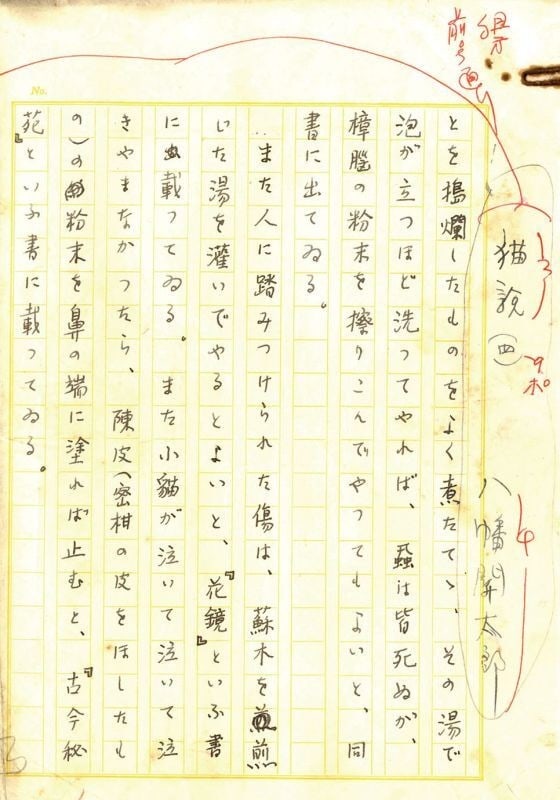 No.
前号通り
猫説(四)
9ポ
八幡関太郎
とを搗爛したものをよく煮たてゝ、その湯で
泡が立つほど洗つてやれば、蝨は皆死ぬが、
樟腦の粉末を擦りこんでやつてもよいと、同
書に出てゐる。
また人に踏みつけられた傷は、蘇木を煎
じた湯を灌いでやるとよいと、『花鏡』といふ書
に載つてゐる。また小貓が泣いて泣いて泣
きやまなかつたら、陳皮(密柑の皮をほしたも
の)の粉末を鼻の端に塗れば止むと、『古今秘
苑』といふ書に載つてゐる。